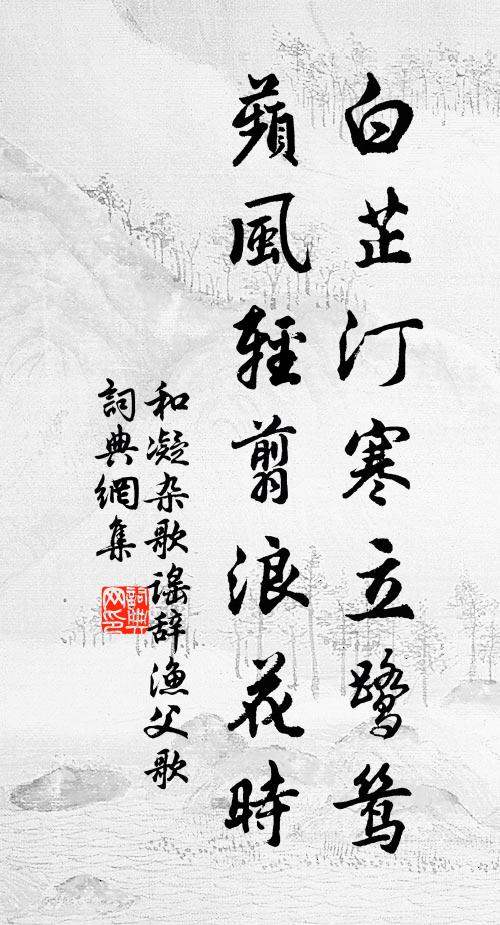 白芷汀寒立鹭鸶
蘋風輕剪浪花時
和凝杂歌谣辞渔父歌
詞典網集
詞典网印